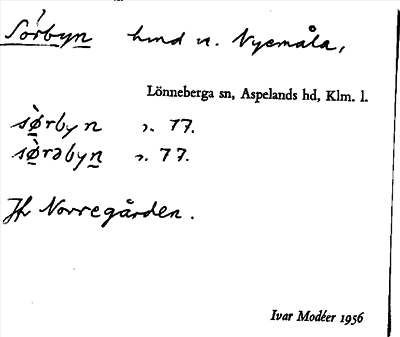 Sörbyn hmd u. Nyemåla,
Lönneberga sn, Aspelands hd, Klm. l.
sø̀rbyn s. 77.
sø̀rəbyn s. 77.
Jfr Norregården.
Ivar Modéer 1956